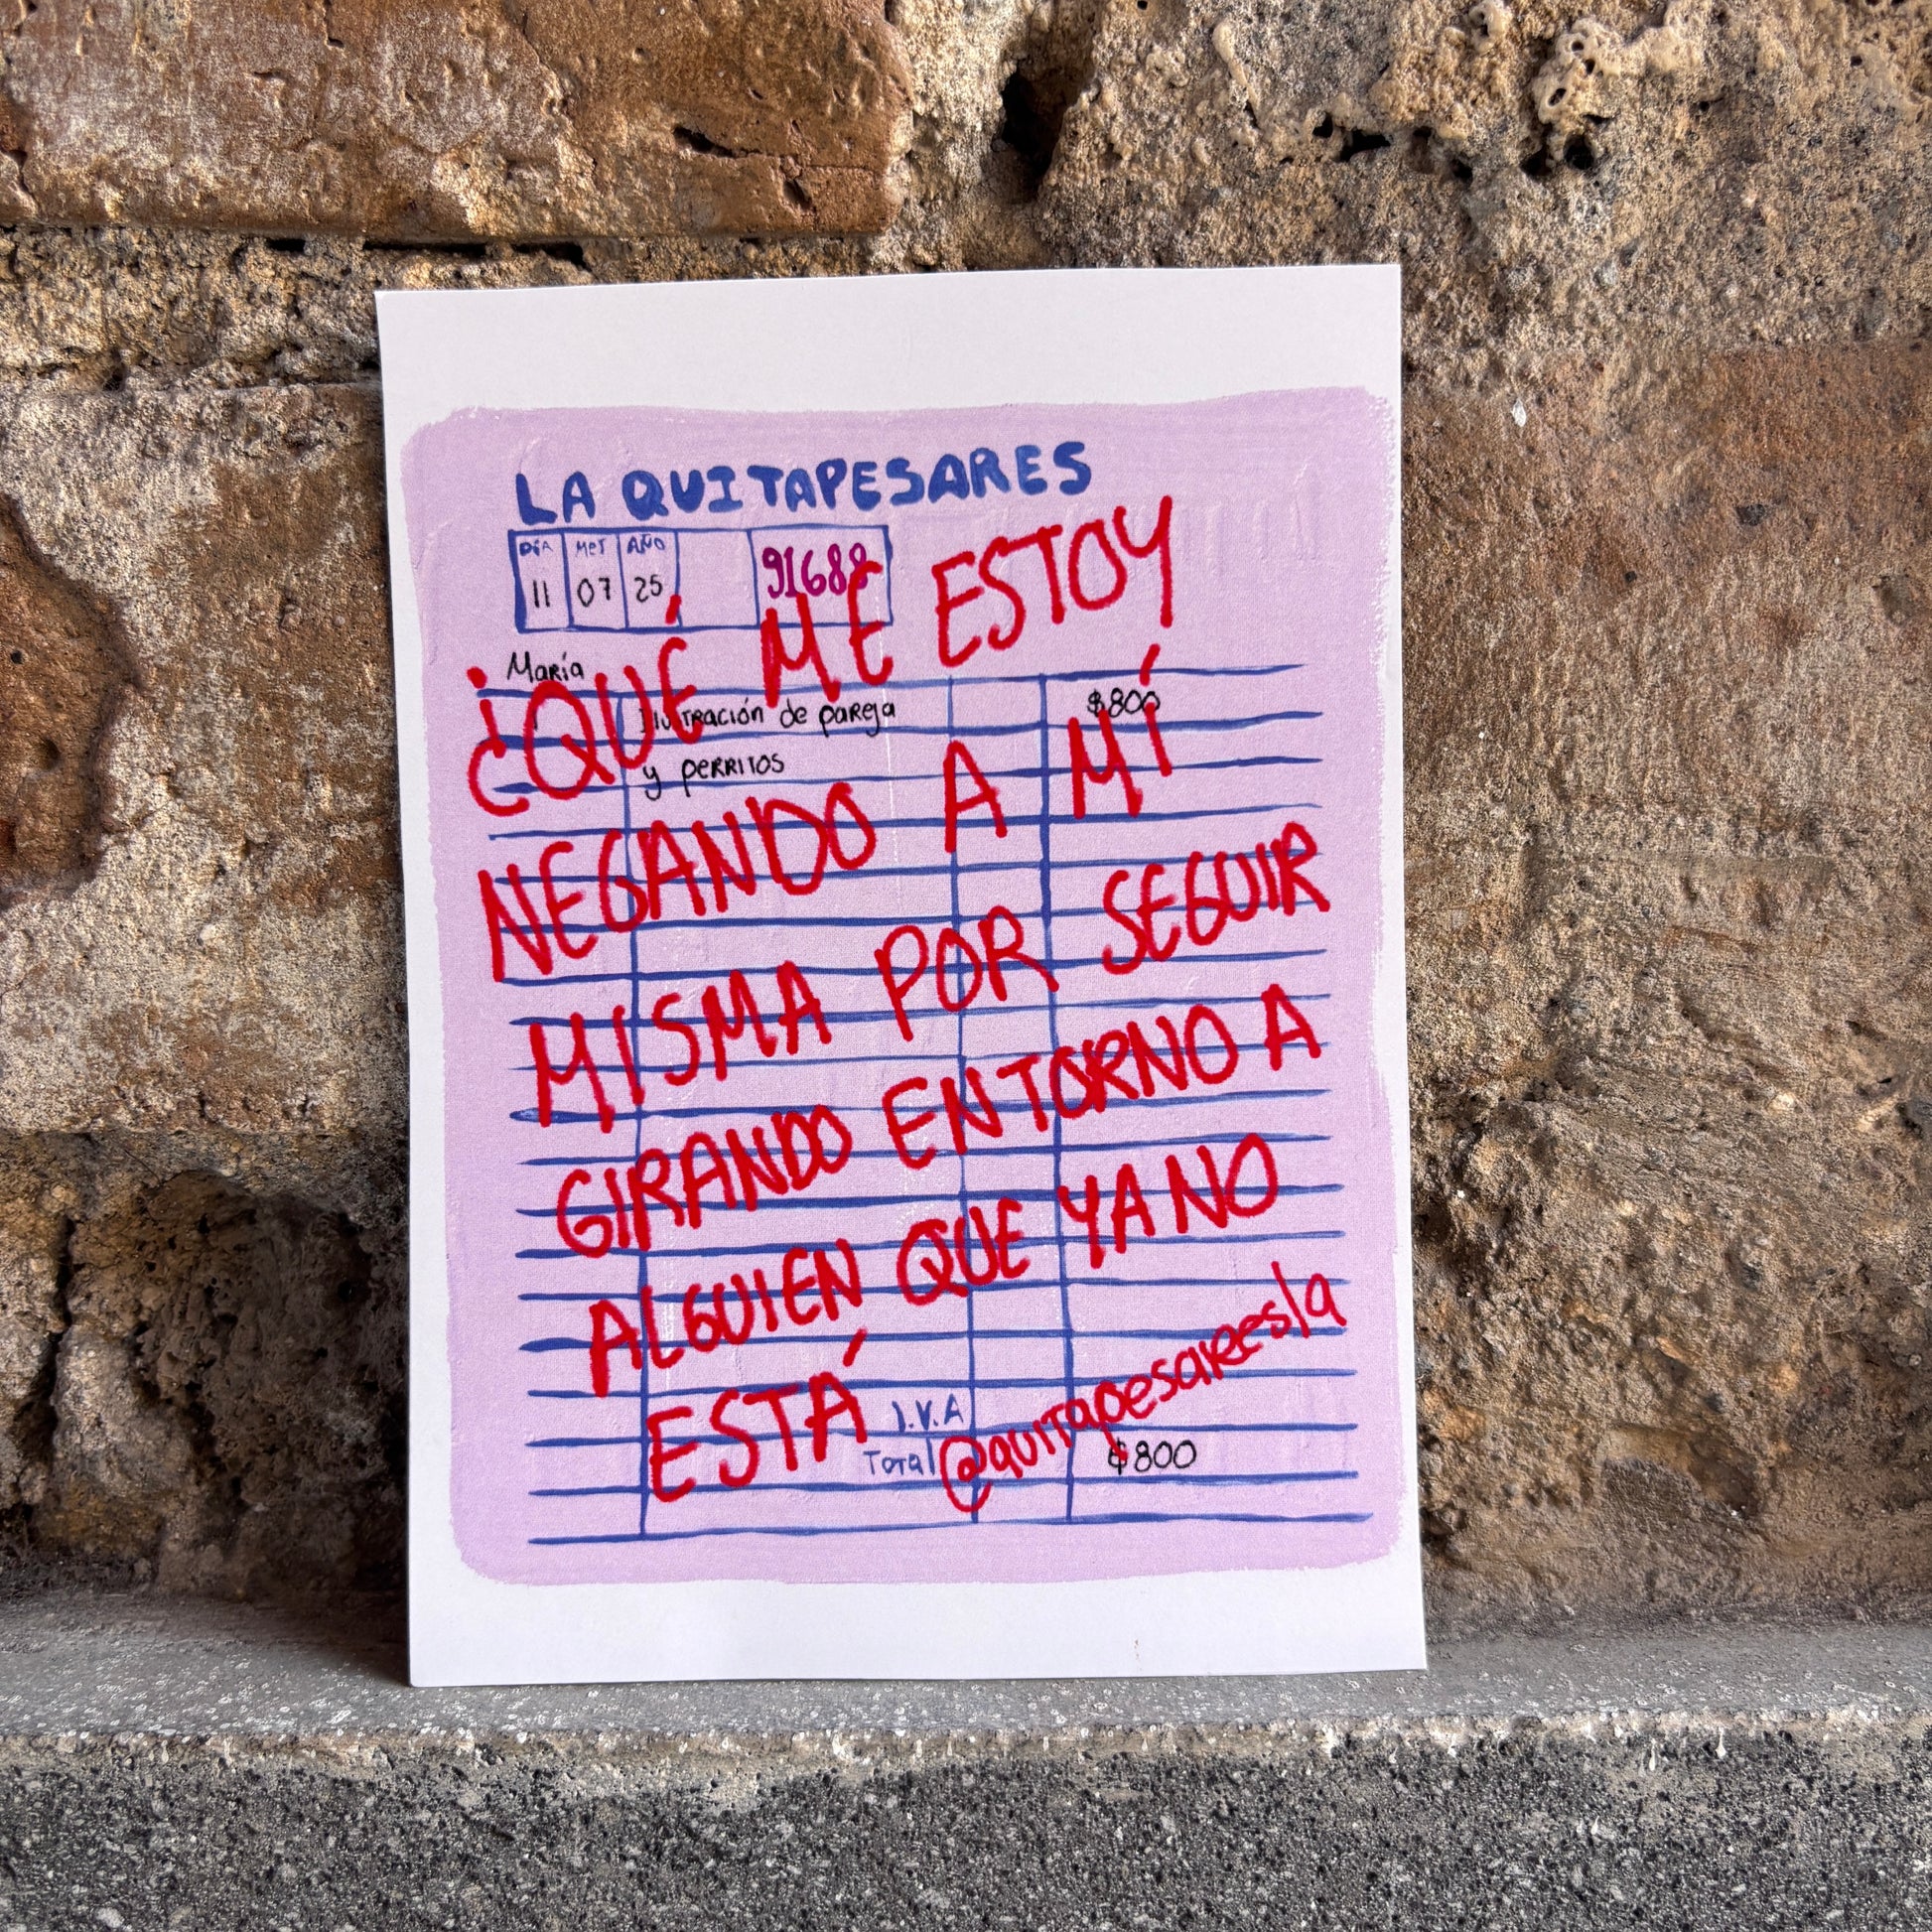 LA QUITAPESARES
DÍA MES AÑO
11 07 25
91688
María
Ilustración de pareja $800
y perritos
¿QUÉ ME ESTOY
NEGANDO A MÍ
MISMA POR SEGUIR
GIRANDO EN TORNO A
ALGUIEN QUE YA NO
ESTÁ
I.V.A
Total $800
@quitapesaresla